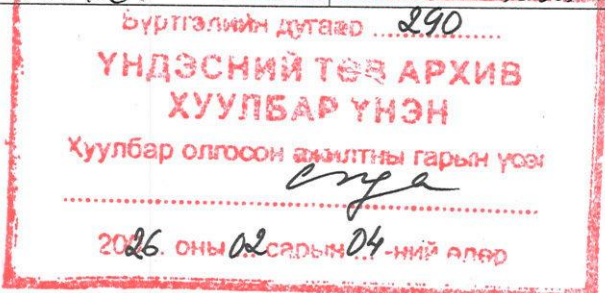 Бүртгэлийн дугаар ...290............
ҮНДЭСНИЙ ТӨВ АРХИВ
ХУУЛБАР ҮНЭН
Хуулбар олгосон ажилтны гарын үсэг
2026. оны 02 сарын 04-ний өдөр